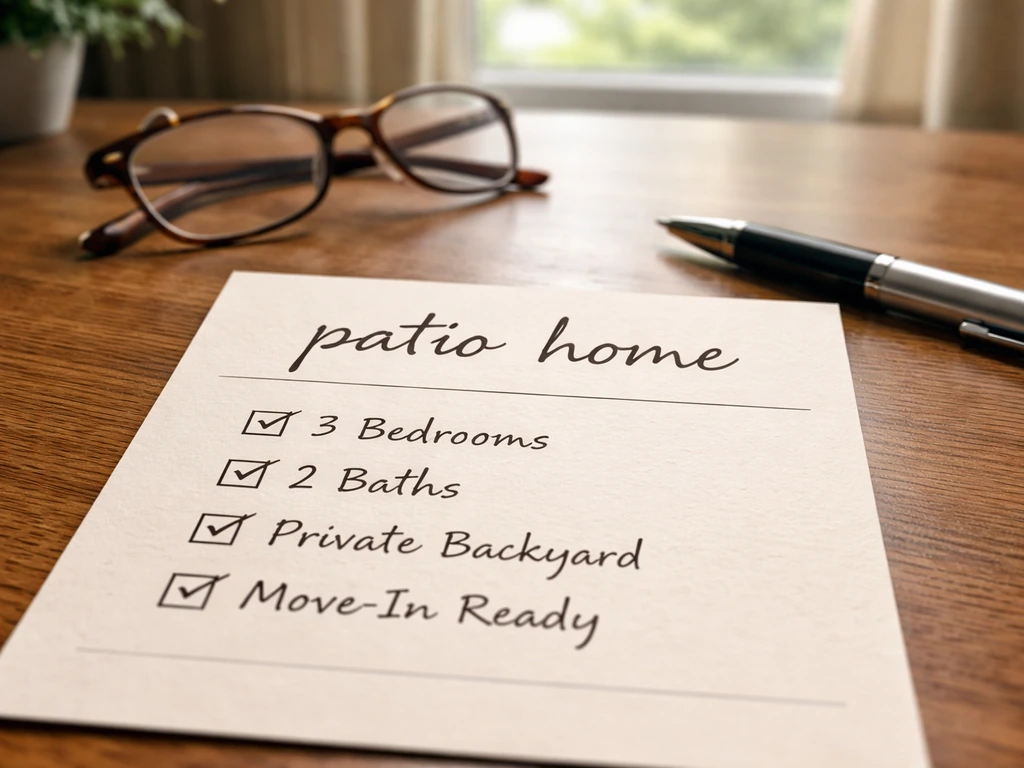 patio home
3 Bedrooms
2 Baths
Private Backyard
Move-In Ready